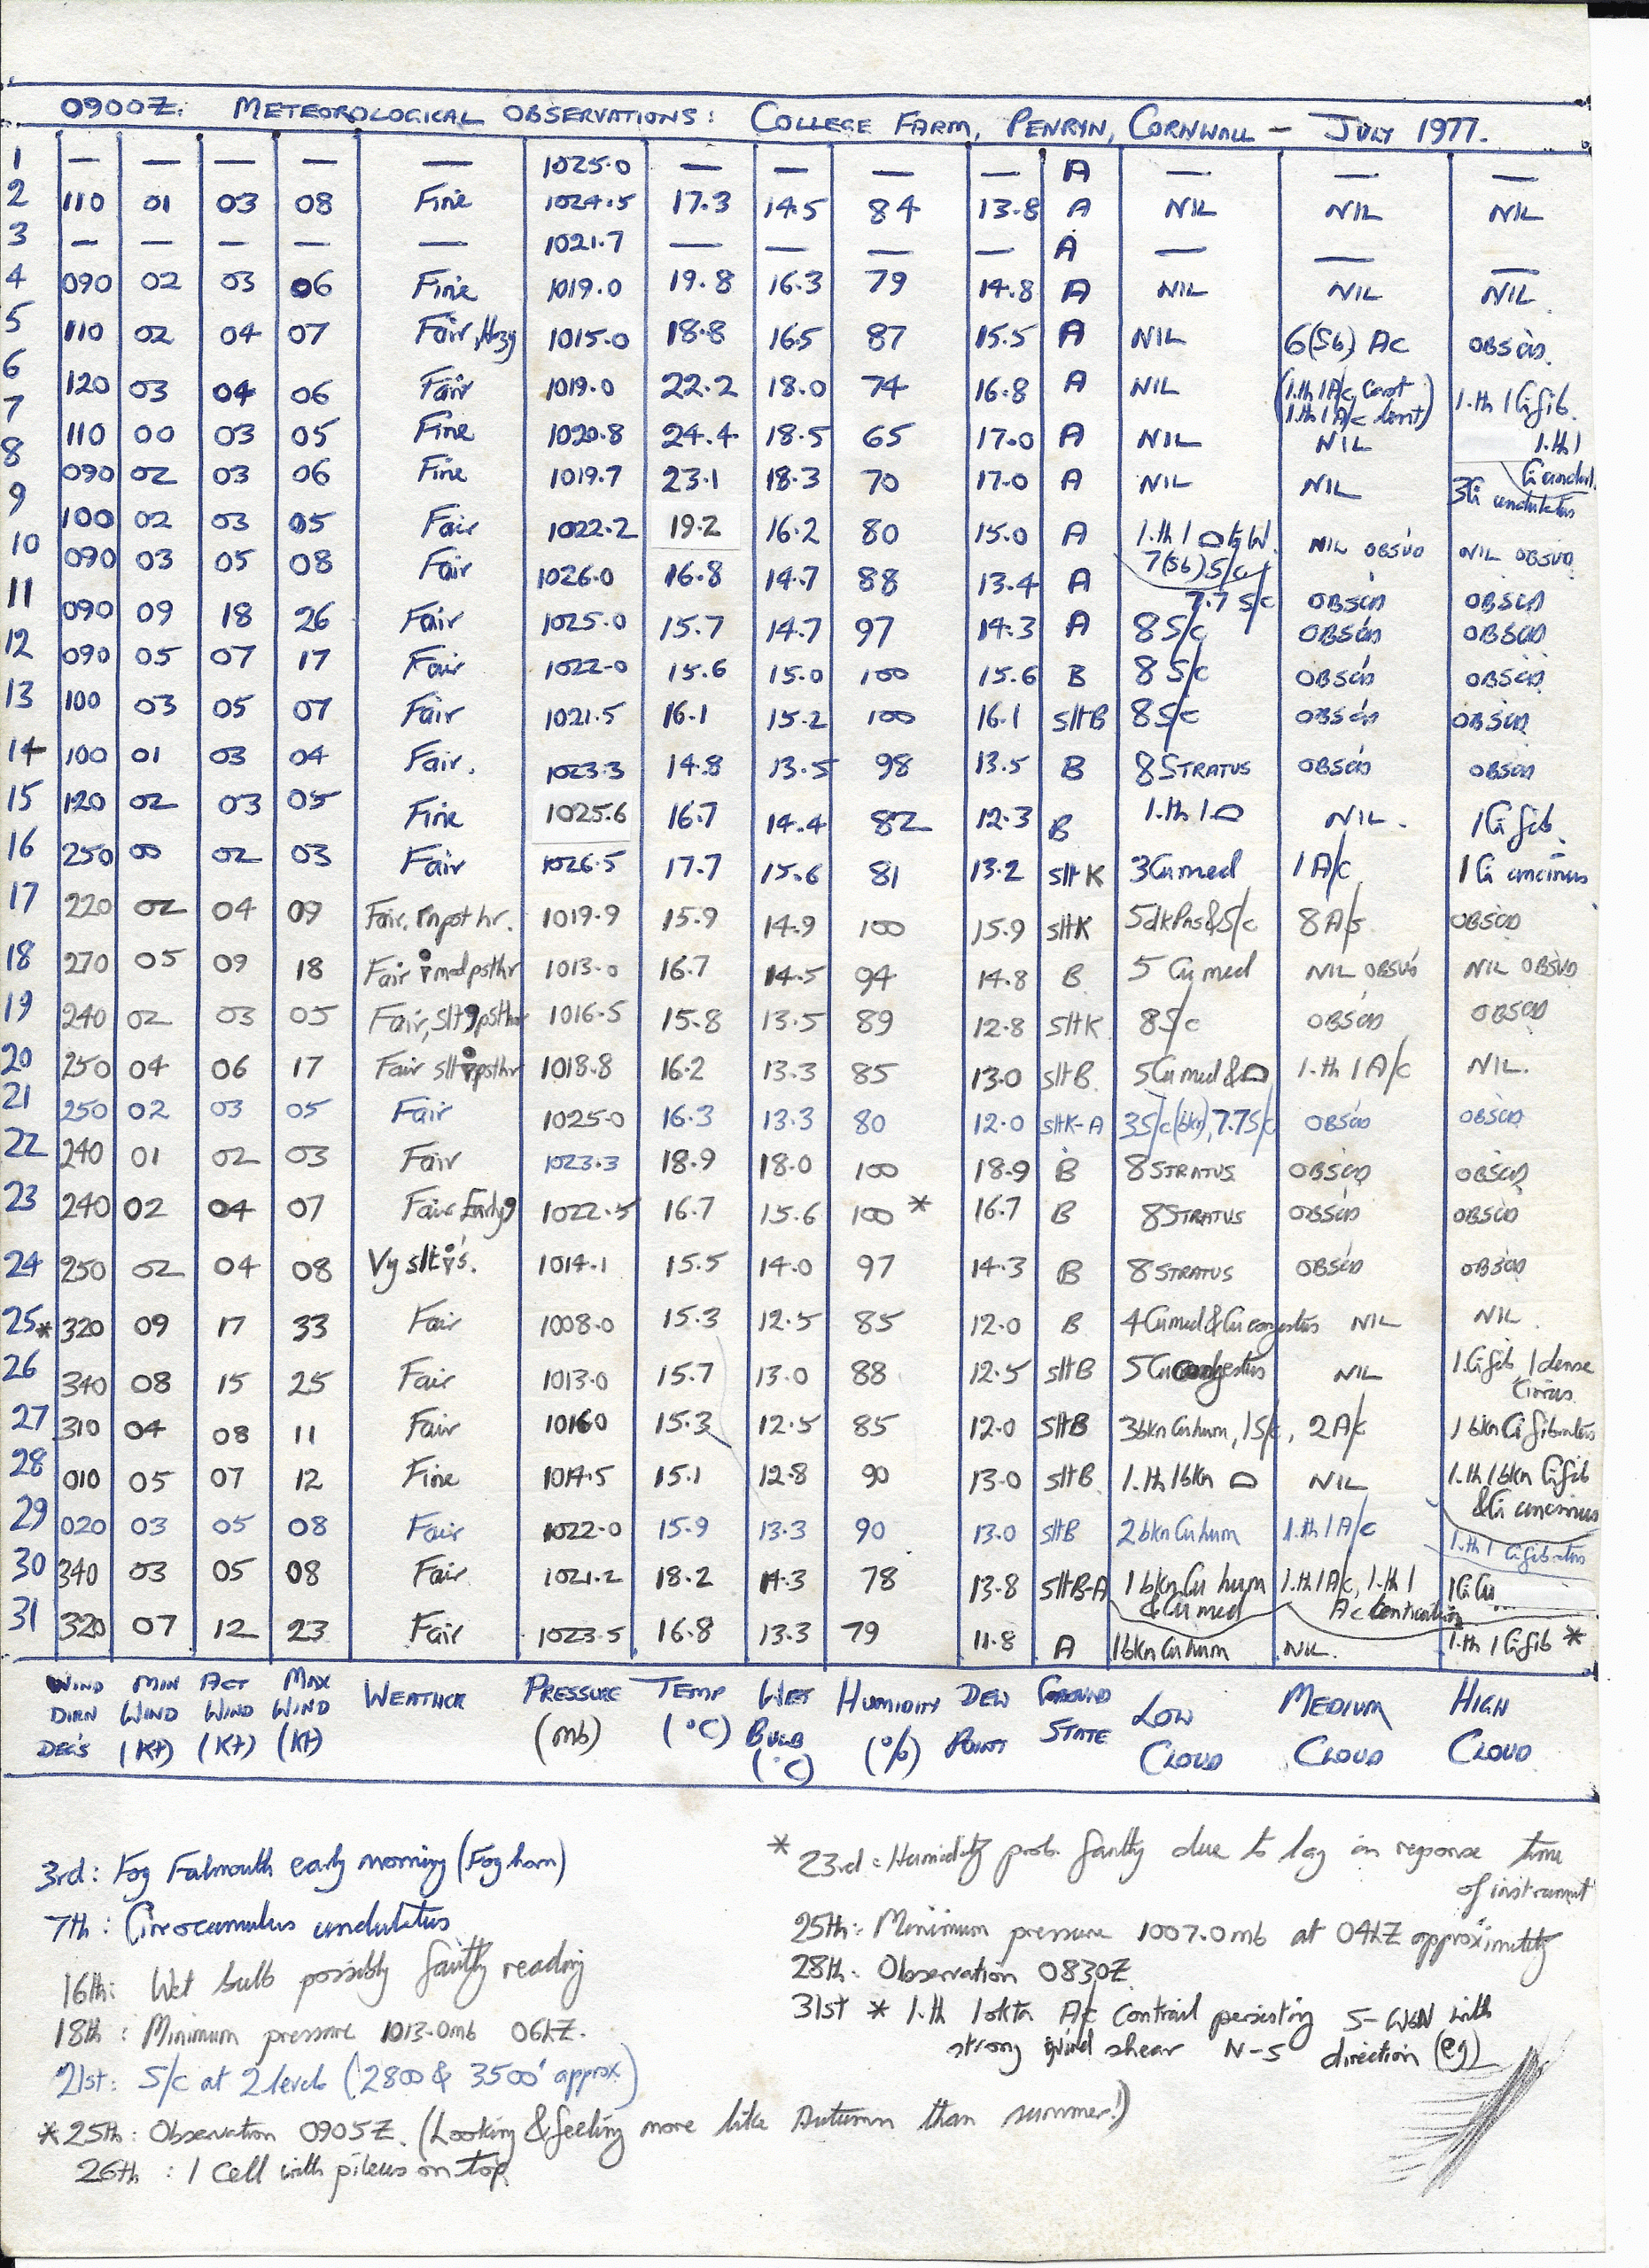 0900Z. METEOROLOGICAL OBSERVATIONS: COLLEGE FARM, PENRYN, CORNWALL - JULY 1977.
1 — — — — — 1025.0 — — — — A — — —
2 110 01 03 08 Fine 1024.5 17.3 14.5 84 13.8 A NIL NIL NIL
3 — — — — — 1021.7 — — — — A — — —
4 090 02 03 06 Fine 1019.0 19.8 16.3 79 14.8 A NIL NIL NIL.
5 110 02 04 07 Fair, Hzy 1015.0 18.8 16.5 87 15.5 A NIL 6(Sb) Ac OBSCD.
6 120 03 04 06 Fair 1019.0 22.2 18.0 74 16.8 A NIL (1.th 1 A/c, Cast 1.th 1 A/c lent) 1.th 1 Ci fib.
7 110 00 03 05 Fine 1020.8 24.4 18.5 65 17.0 A NIL NIL 1.th 1 Ci undul.
8 090 02 03 06 Fine 1019.7 23.1 18.3 70 17.0 A NIL NIL 3Ci undulatus
9 100 02 03 05 Fair 1022.2 19.2 16.2 80 15.0 A 1.th 1 to W. NIL OBSVD NIL OBSVD
10 090 03 05 08 Fair 1026.0 16.8 14.7 88 13.4 A 7(Sb) S/c 7.7 S/c OBSCD OBSCD
11 090 09 18 26 Fair 1025.0 15.7 14.7 97 14.3 A 8 S/c OBSCD OBSCD
12 090 05 07 17 Fair 1022.0 15.6 15.0 100 15.6 B 8 S/c OBSCD OBSCD
13 100 03 05 07 Fair 1021.5 16.1 15.2 100 16.1 sltB 8 S/c OBSCD OBSCD
14 100 01 03 04 Fair. 1023.3 14.8 13.5 98 13.5 B 8 STRATUS OBSCD OBSCD
15 120 02 03 05 Fine 1025.6 16.7 14.4 82 12.3 B 1.th 1 NIL. 1Ci fib.
16 250 00 02 03 Fair 1026.5 17.7 15.6 81 13.2 slt K 3Cu med 1 A/c 1 Ci uncinus
17 220 02 04 09 Fair. rn pst hr. 1019.9 15.9 14.9 100 15.9 sltK 5dkPns&S/c 8 A/s OBSCD
18 270 05 09 18 Fair mod psthr 1013.0 16.7 14.5 94 14.8 B 5 Cu med NIL OBSVD NIL OBSVD
19 240 02 03 05 Fair, slt psthr 1016.5 15.8 13.5 89 12.8 sltK 8S/c OBSCD OBSCD
20 250 04 06 17 Fair slt psthr 1018.8 16.2 13.3 85 13.0 sltB. 5Cu med & 1.th 1 A/c NIL.
21 250 02 03 05 Fair 1025.0 16.3 13.3 80 12.0 sltK-A 3S/c(bkn), 7.7S/c OBSCD OBSCD
22 240 01 02 03 Fair 1023.3 18.9 18.0 100 18.9 B 8 STRATUS OBSCD OBSCD
23 240 02 04 07 Fair Early 1022.5 16.7 15.6 100 * 16.7 B 8 STRATUS OBSCD OBSCD
24 250 02 04 08 Vy slt 's. 1014.1 15.5 14.0 97 14.3 B 8 STRATUS OBSCD OBSCD
25* 320 09 17 33 Fair 1008.0 15.3 12.5 85 12.0 B 4Cu med & Cu congestus NIL NIL.
26 340 08 15 25 Fair 1013.0 15.7 13.0 88 12.5 sltB 5 Cu congestus NIL 1 Ci fib 1 dense Cirrus
27 310 04 08 11 Fair 1016.0 15.3 12.5 85 12.0 sltB 3bkn Cu hum, 1 S/c, 2 A/c 1 bkn Ci fibratus
28 010 05 07 12 Fine 1014.5 15.1 12.8 90 13.0 sltB 1.th 1 bkn NIL 1.th 1 bkn Ci fib & Ci uncinus
29 020 03 05 08 Fair 1022.0 15.9 13.3 90 13.0 sltB 2 bkn Cu hum 1.th 1 A/c 1.th 1 Ci fibratus
30 340 03 05 08 Fair 1021.2 18.2 14.3 78 13.8 sltB-A 1 bkn Cu hum & Cu med 1.th 1 A/c, 1.th 1 Ac lenticularis 1Ci Cu
31 320 07 12 23 Fair 1023.5 16.8 13.3 79 11.8 A 1bkn Cu hum NIL. 1.th 1 Ci fib *
WIND DIRN DEG'S MIN WIND (Kt) ACT WIND (Kt) MAX WIND (Kt) WEATHER PRESSURE (mb) TEMP (°C) WET BULB (°C) HUMIDITY (%) DEW POINT GROUND STATE LOW CLOUD MEDIUM CLOUD HIGH CLOUD
3rd: Fog Falmouth early morning (Fog horn)
7th: Cirrocumulus undulatus
16th: Wet bulb possibly faulty reading
18th: Minimum pressure 1013.0mb 06hZ.
21st: S/c at 2 levels (2800 & 3500' approx)
*25th: Observation 0905Z. (Looking & feeling more like Autumn than summer!)
26th: 1 cell with pileus on top
* 23rd: Humidity prob. faulty due to lag in reponse time
of instrument
25th: Minimum pressure 1007.0mb at 04hZ approximately
28th: Observation 0830Z
31st * 1.th 1 okta A/c Contrail persisting S-WbN with
strong wind shear N-S direction (eg)